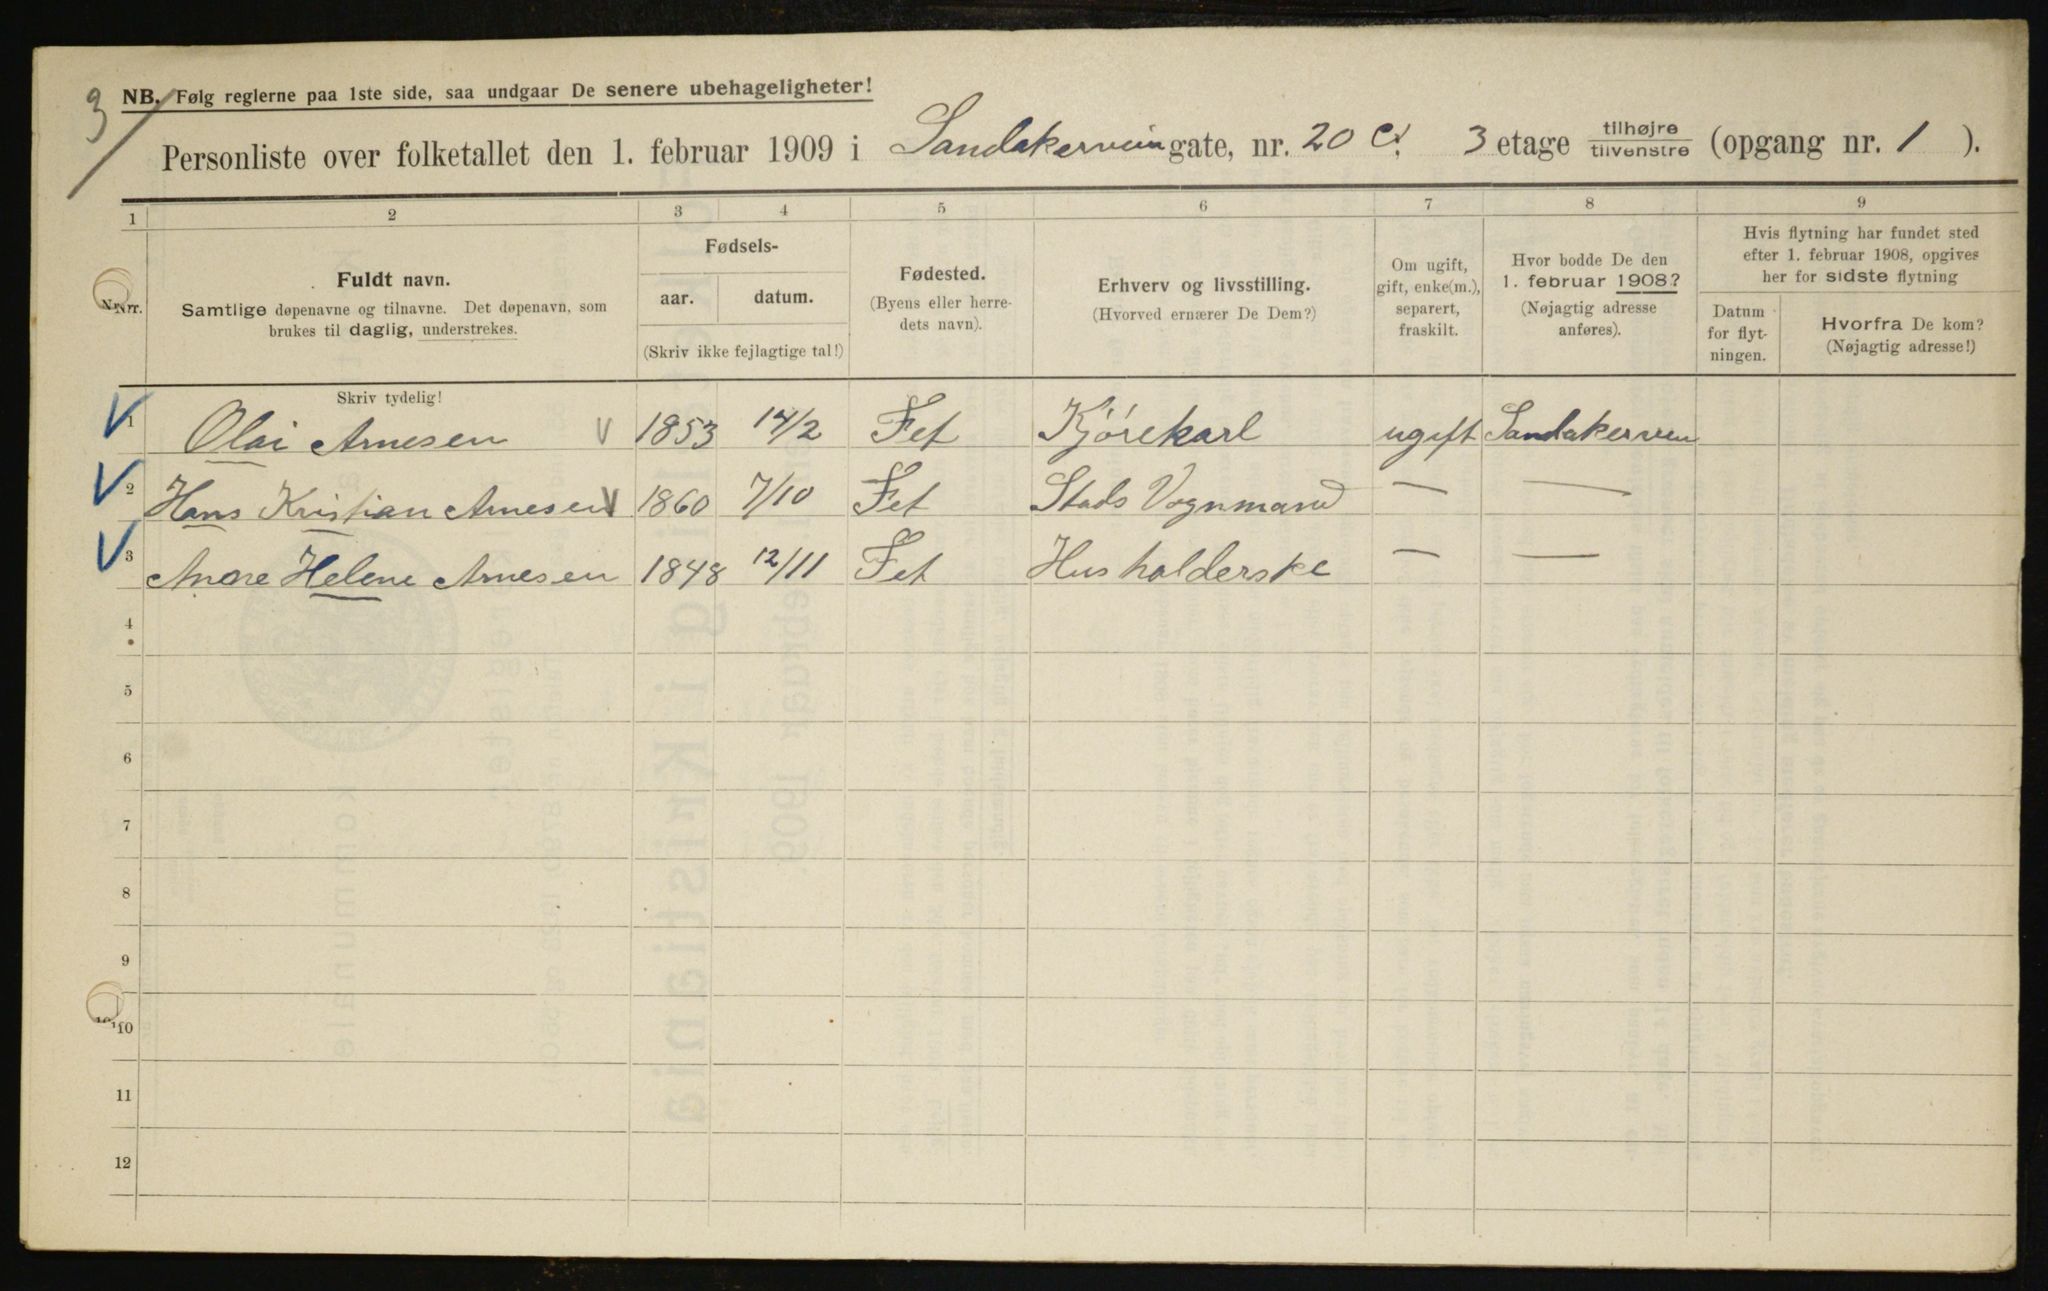 3
NB. Følg reglerne paa 1ste side, saa undgaar De senere ubehageligheter!
Personliste over folketallet den 1. februar 1909 i Sandakerveien gate, nr. 20 C. 3 etage tilhøjre tilvenstre (opgang nr. 1 ).
1 2 3 4 5 6 7 8 9
Nr. Fuldt navn. Samtlige døpenavne og tilnavne. Det døpenavn, som brukes til daglig, understrekes.
Fødsels- aar. datum. (Skriv ikke fejlagtige tal!)
Fødested. (Byens eller herredets navn).
Erhverv og livsstilling. (Hvorved ernærer De Dem?)
Om ugift, gift, enke(m.), separert, fraskilt.
Hvor bodde De den 1. februar 1908? (Nøjagtig adresse anføres).
Hvis flytning har fundet sted efter 1. februar 1908, opgives her for sidste flytning
Datum for flytningen. Hvorfra De kom? (Nøjagtig adresse!)
Skriv tydelig!
1 Olai Arnesen 1853 14/2 Fet Kjørekarl ugift Sandakerveien
2 Hans Kristian Arnesen 1860 7/10 Fet Stads Vognmand — —
3 Anne Helene Arnesen 1848 12/11 Fet Husholderske — —
4
5
6
7
8
9
10
11
12